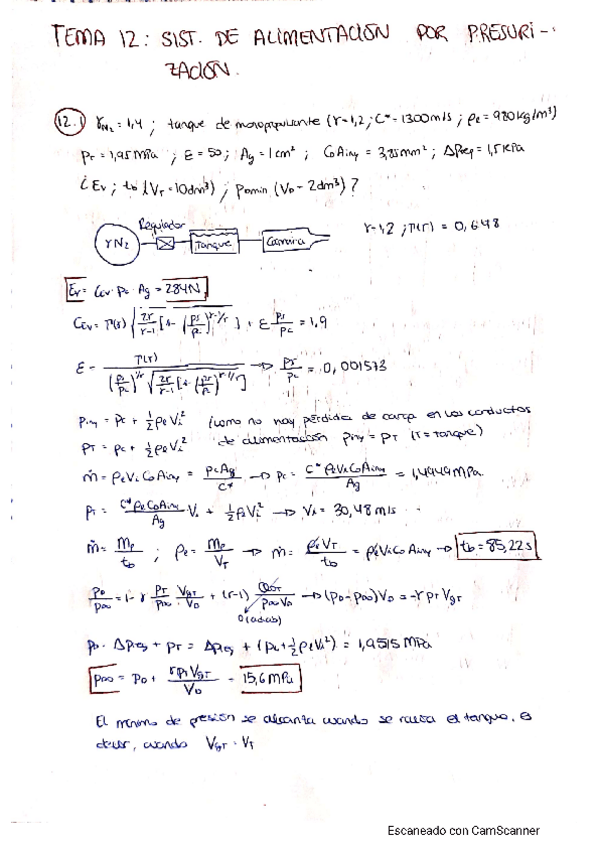 TEMA 12: SIST. DE ALIMENTACION POR PRESURI-
ZACION.
12.1 γN2 = 1,4 ; tanque de monopropulante (γ=1,2 ; C*=1300m/s ; ρe = 980kg/m³)
PT = 1,95MPa ; ε = 50 ; Ag = 1cm² ; CoAiny = 3,85mm² ; ΔPreg = 1,5KPa
¿Ev ; tb (VT = 10dm³) ; poomin (V0 = 2dm³)?
Regulador
γN2
Tanque
Camara
γ=1,2 ; Γ(γ) = 0,648
Ev = CEV · pc · Ag = 284N
CEV = Γ(γ) √(2γ/(γ-1) [1-(ps/pc)^((γ-1)/γ)]) + ε ps/pc = 1,9
ε = Γ(γ)/((ps/pc)^(1/γ) √(2γ/(γ-1) [1-(ps/pc)^((γ-1)/γ)])) → ps/pc = 0,001573
piny = pc + ½ρeVi² (como no hay pérdida de carga en los conductos
pT = pc + ½ρeVi² de alimentación piny = pT (T=tanque)
ṁ = ρeViCoAiny = pcAg/C* → pc = C*ρeViCoAiny/Ag = 1,4949MPa
pT = C*ρeCoAiny/Ag Vi + ½ρeVi² → Vi = 30,48m/s
ṁ = Mp/tb ; ρe = Mp/VT → ṁ = ρeVT/tb = ρeViCoAiny → tb = 85,22s
p0/poo = 1-γ pT/poo VgT/V0 + (γ-1) /pooV0 → (p0-poo)V0 = -γpTVgT
0(adiab)
p0 = ΔPreg + pT = ΔPreg + (pc+½ρeVi²) = 1,9515MPa
poo = p0 + γpTVgT/V0 = 15,6MPa
El mínimo de presión se alcanza cuando se vacía el tanque, es
decir, cuando VgT = VT
Escaneado con CamScanner